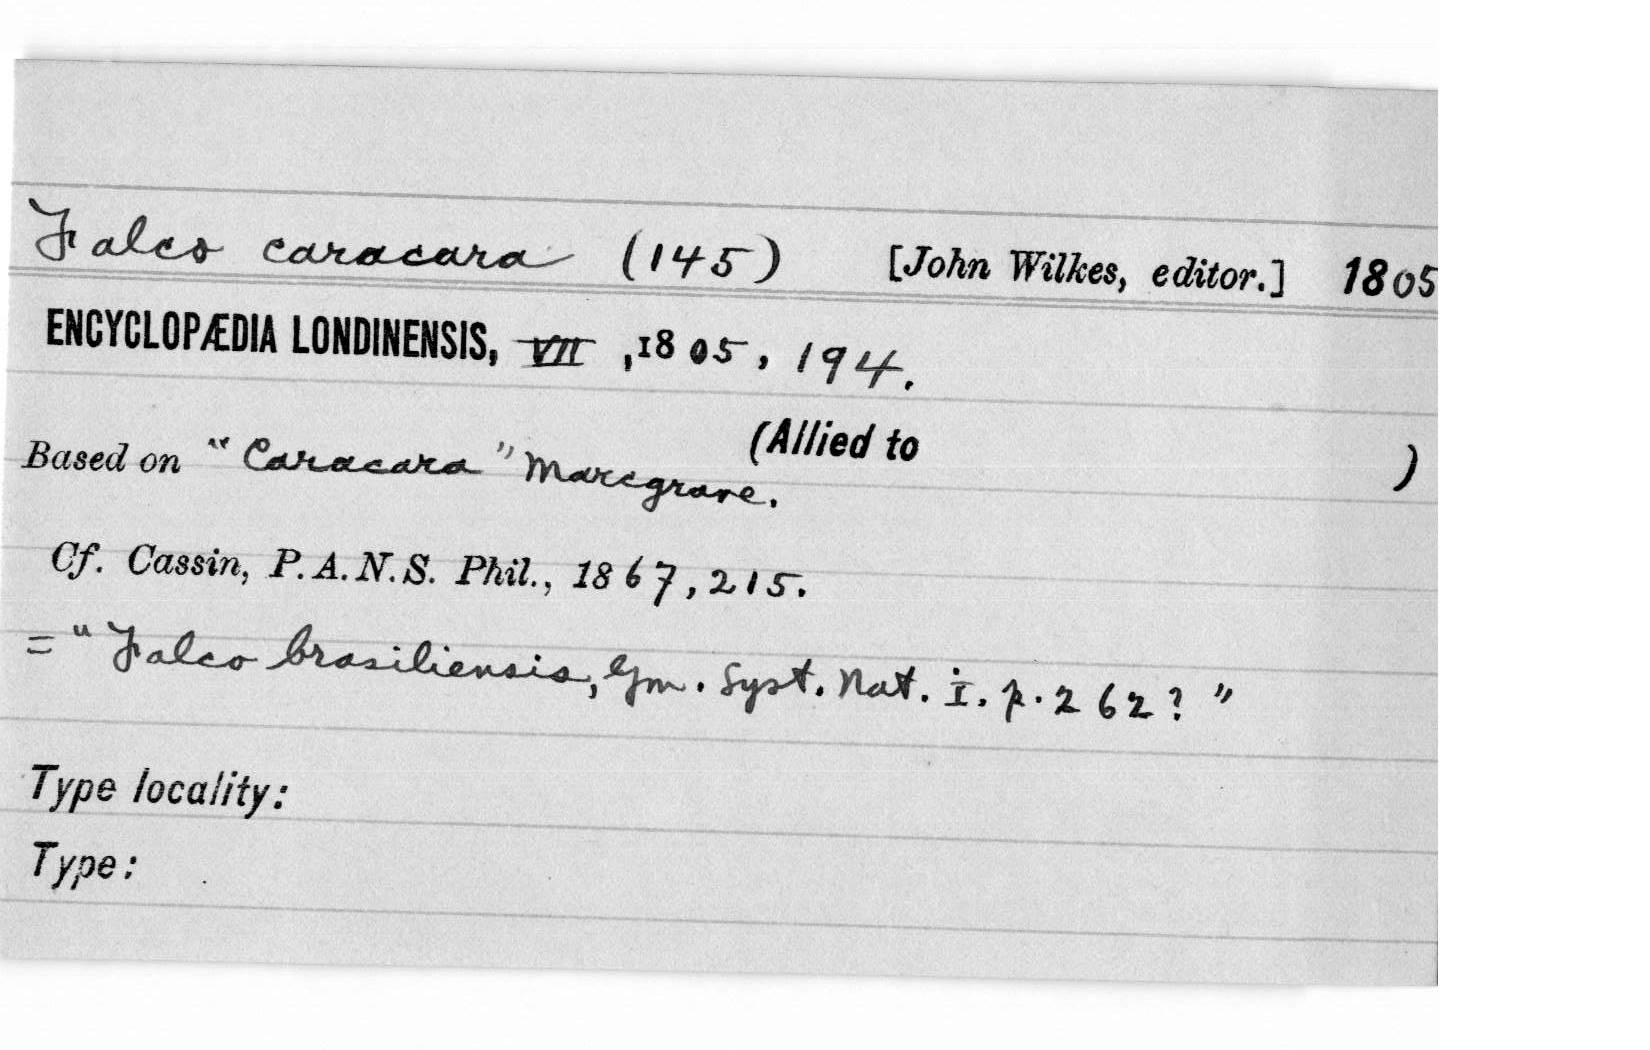 Falco caracara (145) [John Wilkes, editor.] 1805
ENCYCLOPÆDIA LONDINENSIS, VII, 1805, 194.
(Allied to )
Based on "Caracara" Marcgrave.
Cf. Cassin, P.A.N.S. Phil., 1867, 215.
= "Falco brasiliensis, Gm. Syst. Nat. i. p. 262?"
Type locality:
Type: